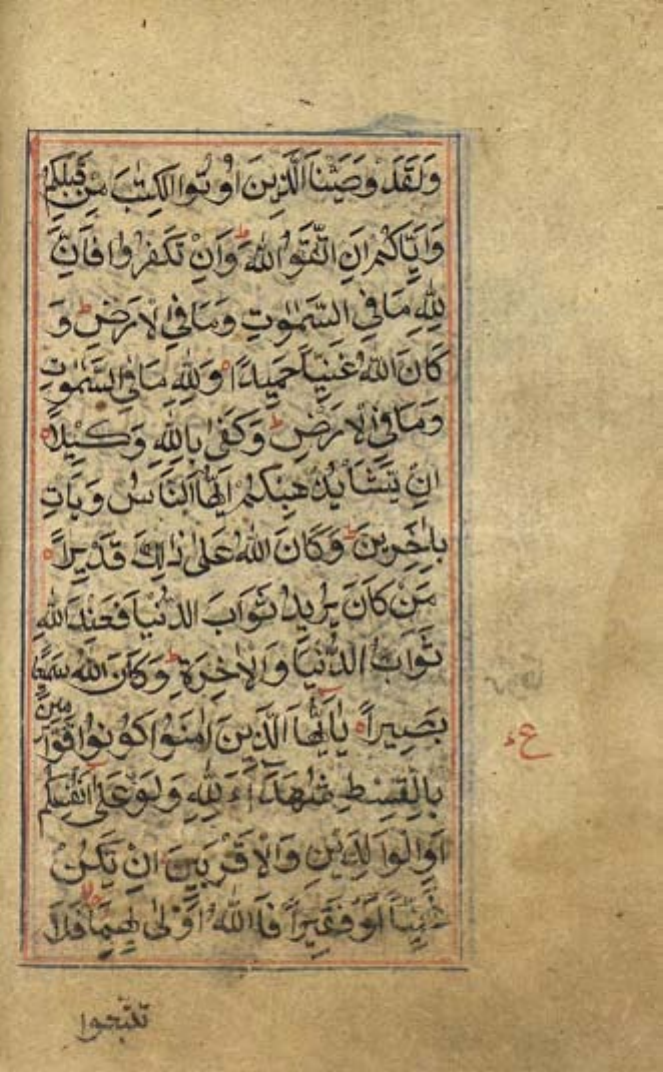 وَلَقَدْ وَصَّيْنَا الَّذِينَ اُوتُوا الْكِتٰبَ مِنْ قَبْلِكُمْ
وَاِيَّاكُمْ اَنِ اتَّقُوا اللّٰهَ ط وَاِنْ تَكْفُرُوا فَاِنَّ
لِلّٰهِ مَا فِي السَّمٰوٰتِ وَمَا فِي الْاَرْضِ ط وَ
كَانَ اللّٰهُ غَنِيًّا حَمِيدًا ه وَلِلّٰهِ مَا فِي السَّمٰوٰتِ
وَمَا فِي الْاَرْضِ ط وَكَفٰى بِاللّٰهِ وَكِيْلًا ه
اِنْ يَّشَاْ يُذْهِبْكُمْ اَيُّهَا النَّاسُ وَيَاْتِ
بِاٰخَرِينَ ط وَكَانَ اللّٰهُ عَلٰى ذٰلِكَ قَدِيْرًا ه
مَنْ كَانَ يُرِيْدُ ثَوَابَ الدُّنْيَا فَعِنْدَ اللّٰهِ
ثَوَابُ الدُّنْيَا وَالْاٰخِرَةِ ط وَكَانَ اللّٰهُ سَمِيْعًا
بَصِيْرًا ه يٰاَيُّهَا الَّذِيْنَ اٰمَنُوْا كُوْنُوْا قَوَّامِيْنَ
بِالْقِسْطِ شُهَدَآءَ لِلّٰهِ وَلَوْ عَلٰى اَنْفُسِكُمْ
اَوِ الْوَالِدَيْنِ وَالْاَقْرَبِيْنَ اِنْ يَكُنْ
غَنِيًّا اَوْ فَقِيْرًا فَاللّٰهُ اَوْلٰى بِهِمَا فَلَا
ع
تتبعوا